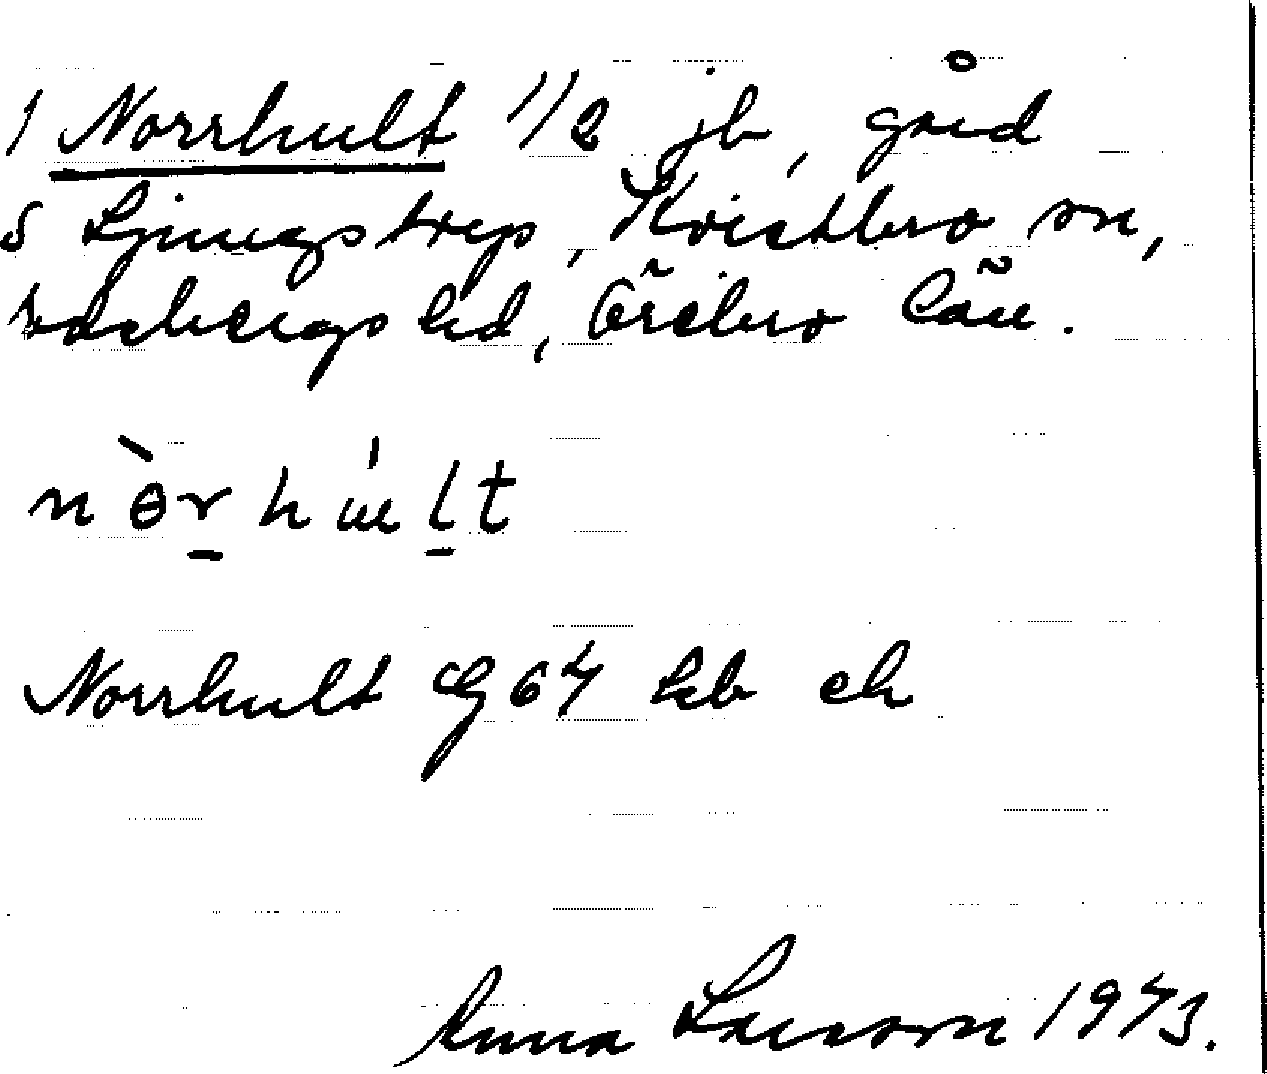 1 Norrhult 1/2 jb, gård
S Ljungstorp, Kvistbro sn,
hd, Örebro län.
nòrhu̍lt
Norrhult 67 kb ek
Anna Larsson 1973.